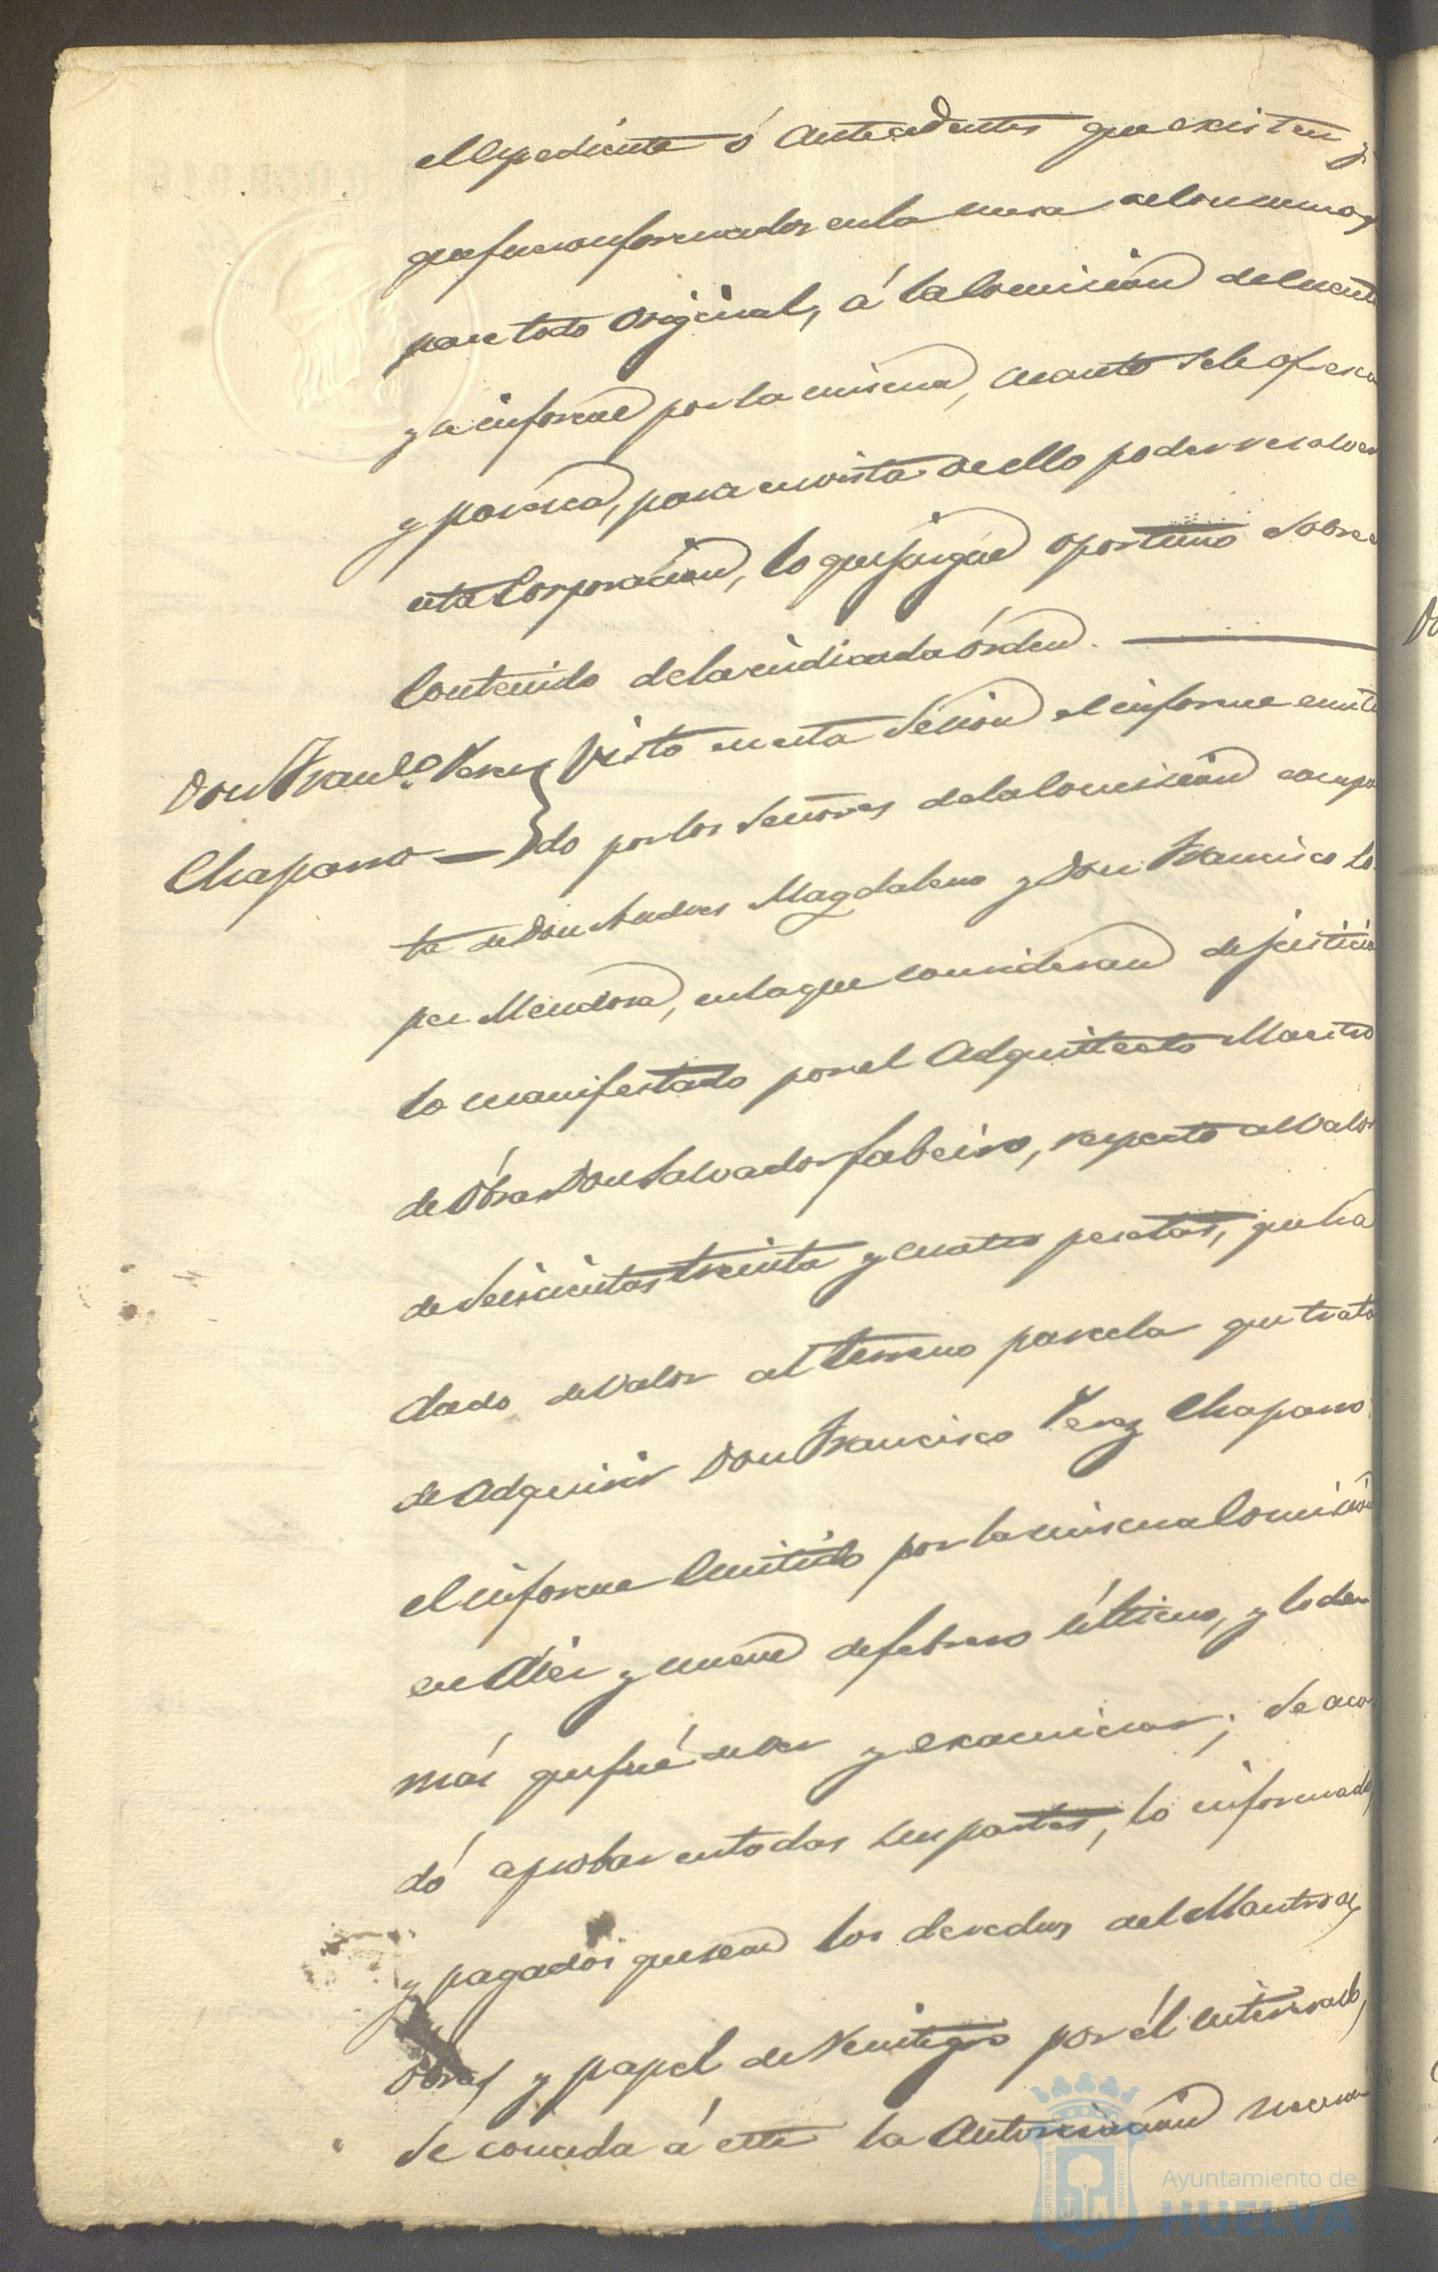 el espediente ó antecedentes que existen y
que fueron formados en la mesa de los mismos
pase todo original, á la Comision del mente
y se informe por la misma, cuanto se le ofresca
y paresca, para en vista de ello poder resolver
esta Corporacion, lo que jusgue oportuno sobre
Contenido de la indicada órden.
Don Franco. Perez
Chaparro
Visto en esta Sesion el informe emiti
do por los Señores de la Comision compues
ta de Don Andres Magdaleno y Don Francisco Lo
pez Mendosa, en la que consideran de justicia
lo manifestado por el Adquitecto Maestro
de Óbras Don Salvador Jabeiro, respecto al valor
de Seiscientas treinta y cuatro pesetas, que ha
dado de valor al terreno parcela que trata
de adquirir Don Francisco Perez Chaparro
el informe Emitido por la misma Comision
en Diez y nueve de febrero último, y lo de
más que fué de ver y examinar; Se acor
dó aprobar en todas sus partes, lo informado,
y pagados que sean los derechos del Maestro de
Obras y papel de Reintegro por él interesado,
se conceda á este la Autorisacion necesa
Ayuntamiento de
HUELVA